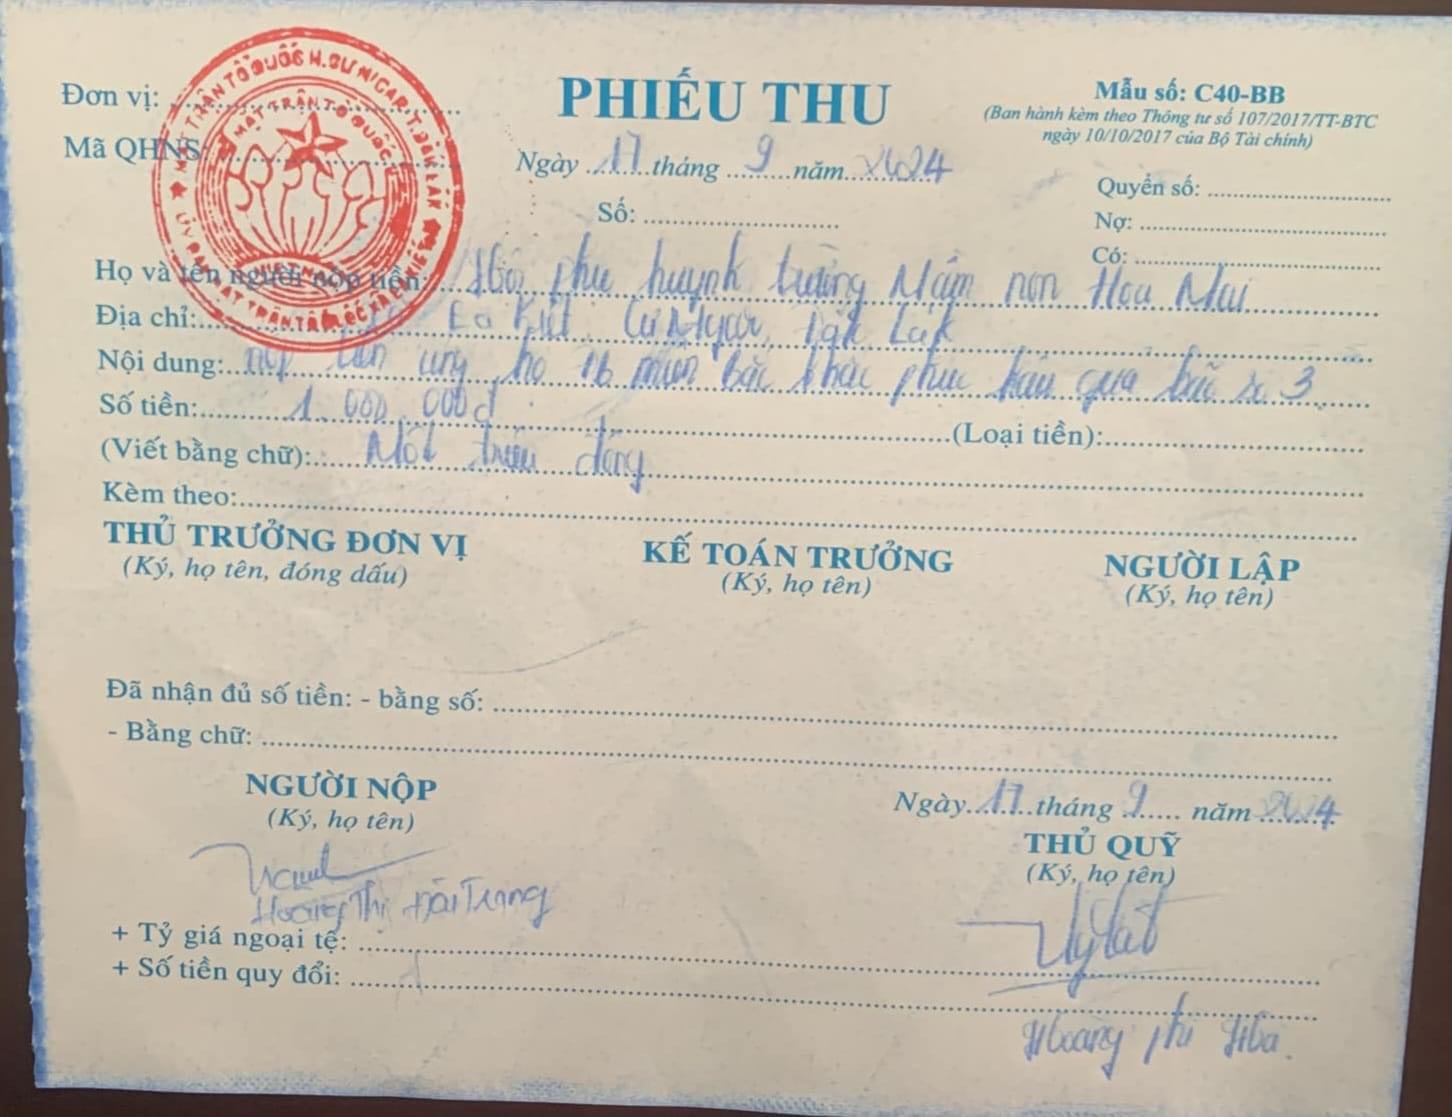 PHIẾU THU
Đơn vị:
Mã QHNS:
Mẫu số: C40-BB
(Ban hành kèm theo Thông tư số 107/2017/TT-BTC
ngày 10/10/2017 của Bộ Tài chính)
Ngày 17 tháng 9 năm 2024
Số:
Quyển số:
Nợ:
Có:
MẶT TRẬN TỔ QUỐC
Họ và tên người nộp tiền: Hội phụ huynh trường Mầm non Hoa Mai
Địa chỉ: Cư M'gar, Đắk Lắk
Nội dung: nộp tiền ủng hộ miền bắc khắc phục hậu quả bão số 3
Số tiền: 1.000.000đ (Loại tiền):
(Viết bằng chữ): Một triệu đồng
Kèm theo:
THỦ TRƯỞNG ĐƠN VỊ
(Ký, họ tên, đóng dấu)
KẾ TOÁN TRƯỞNG
(Ký, họ tên)
NGƯỜI LẬP
(Ký, họ tên)
Đã nhận đủ số tiền: - bằng số:
- Bằng chữ:
NGƯỜI NỘP
(Ký, họ tên)
Hoàng Thị Đài Trang
Ngày 17 tháng 9 năm 2024
THỦ QUỸ
(Ký, họ tên)
+ Tỷ giá ngoại tệ:
+ Số tiền quy đổi:
Hoàng Thị Hoa